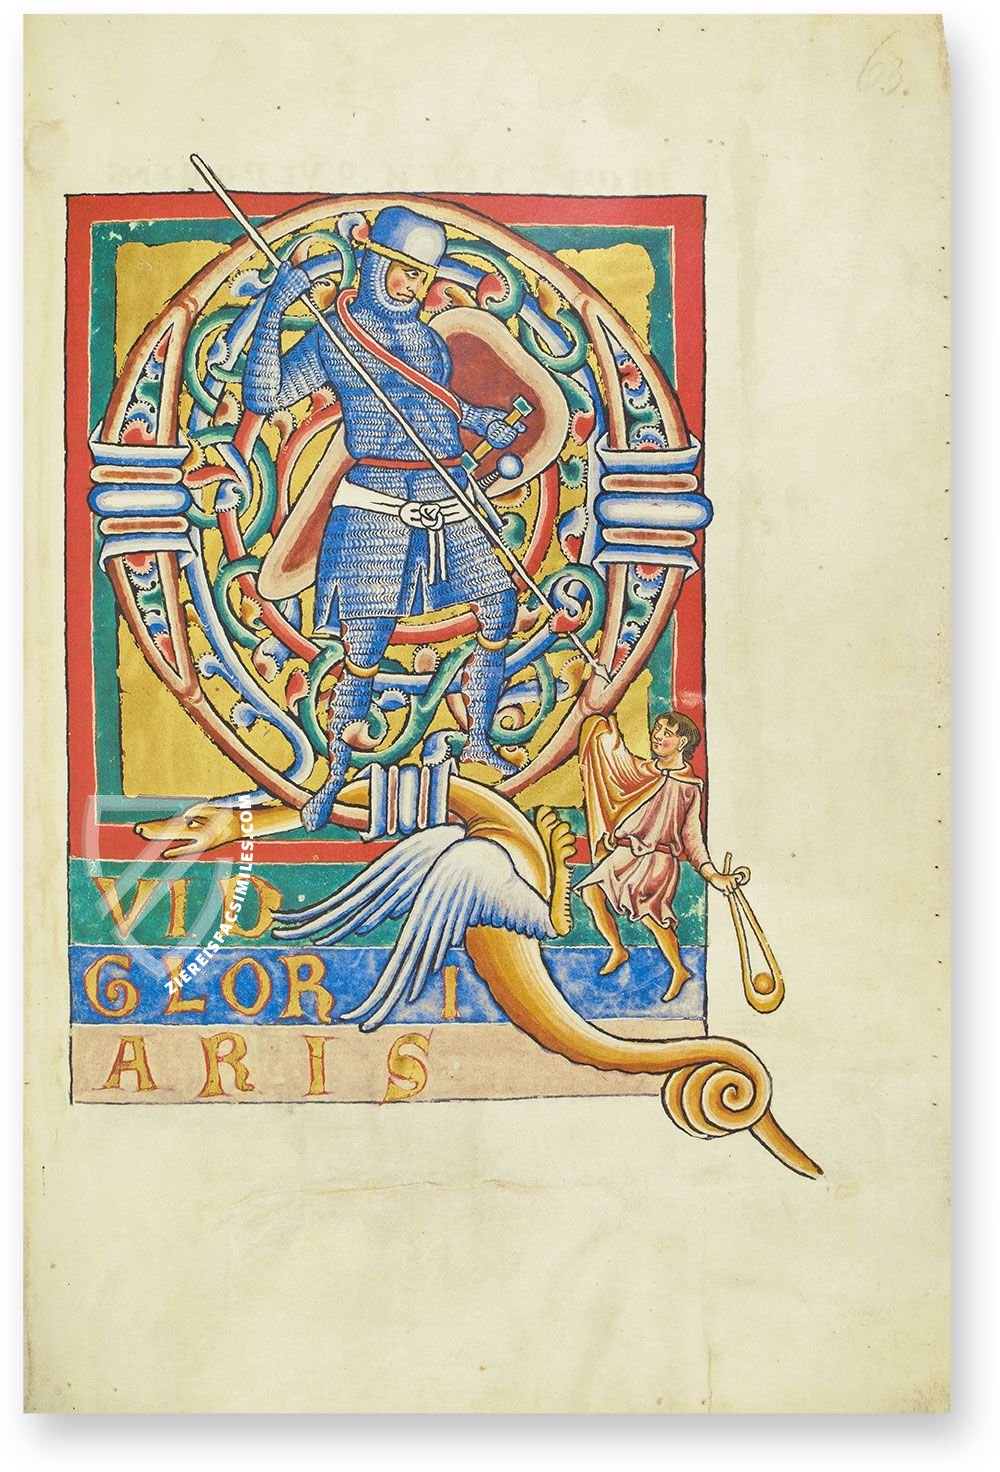 63.
Q
VID
GLORI
ARIS
ZIEREISFACSIMILES.COM